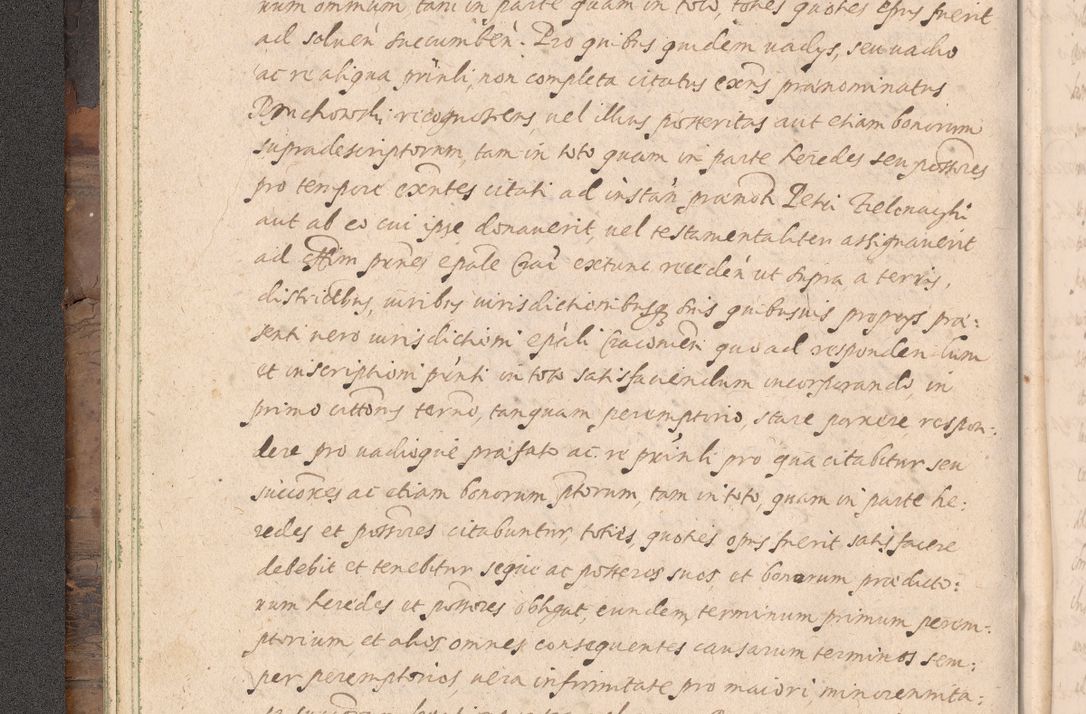 rum omnium tam in parte quam in toto, toties quoties opus fuerit
ad soluen̄ succumben̄. Pro quibus quidem vadys, seu vadio
ac re aliqua prīnli, non completa citatus exn̄s prænominatus
recognoscens, vel illius posteritas aut etiam bonorum
supradescriptorum, tam in toto quam in parte heredes seu possores
pro tempore exn̄tes citati ad instan̄ prænoīti Petri
aut ab eo cui ipse donauerit, vel testamentaliter assignauerit
ad offim pūnes epale Craē extunc receden̄ ut supra a terris,
districtibus, iuribus iurisdictionibusq̨ suis quibusuis proprys præ:
senti vero iurisdictioni epāli Cracouien̄ quo ad respondendum
et inscriptioni pūnti in toto satisfaciendum incorporando, in
primo cittōnis termo, tanquam peremptorio, stare parere, respon:
dere pro vadioque præfato ac re prīnli pro qua citabitur seu
succōres ac etiam bonorum ptorum, tam in toto, quam in parte he:
redes et possores citabuntur, toties, quoties opus fuerit satisfacere
debebit et tenebitur seque ac posteros suos, et bonorum prædicto:
rum heredes et possores obligat, eundem terminum primum perem:
ptorium, et alios omnes consequentes causarum terminos sem:
per peremptorios, vera infirmitate pro maiori, minorennita: